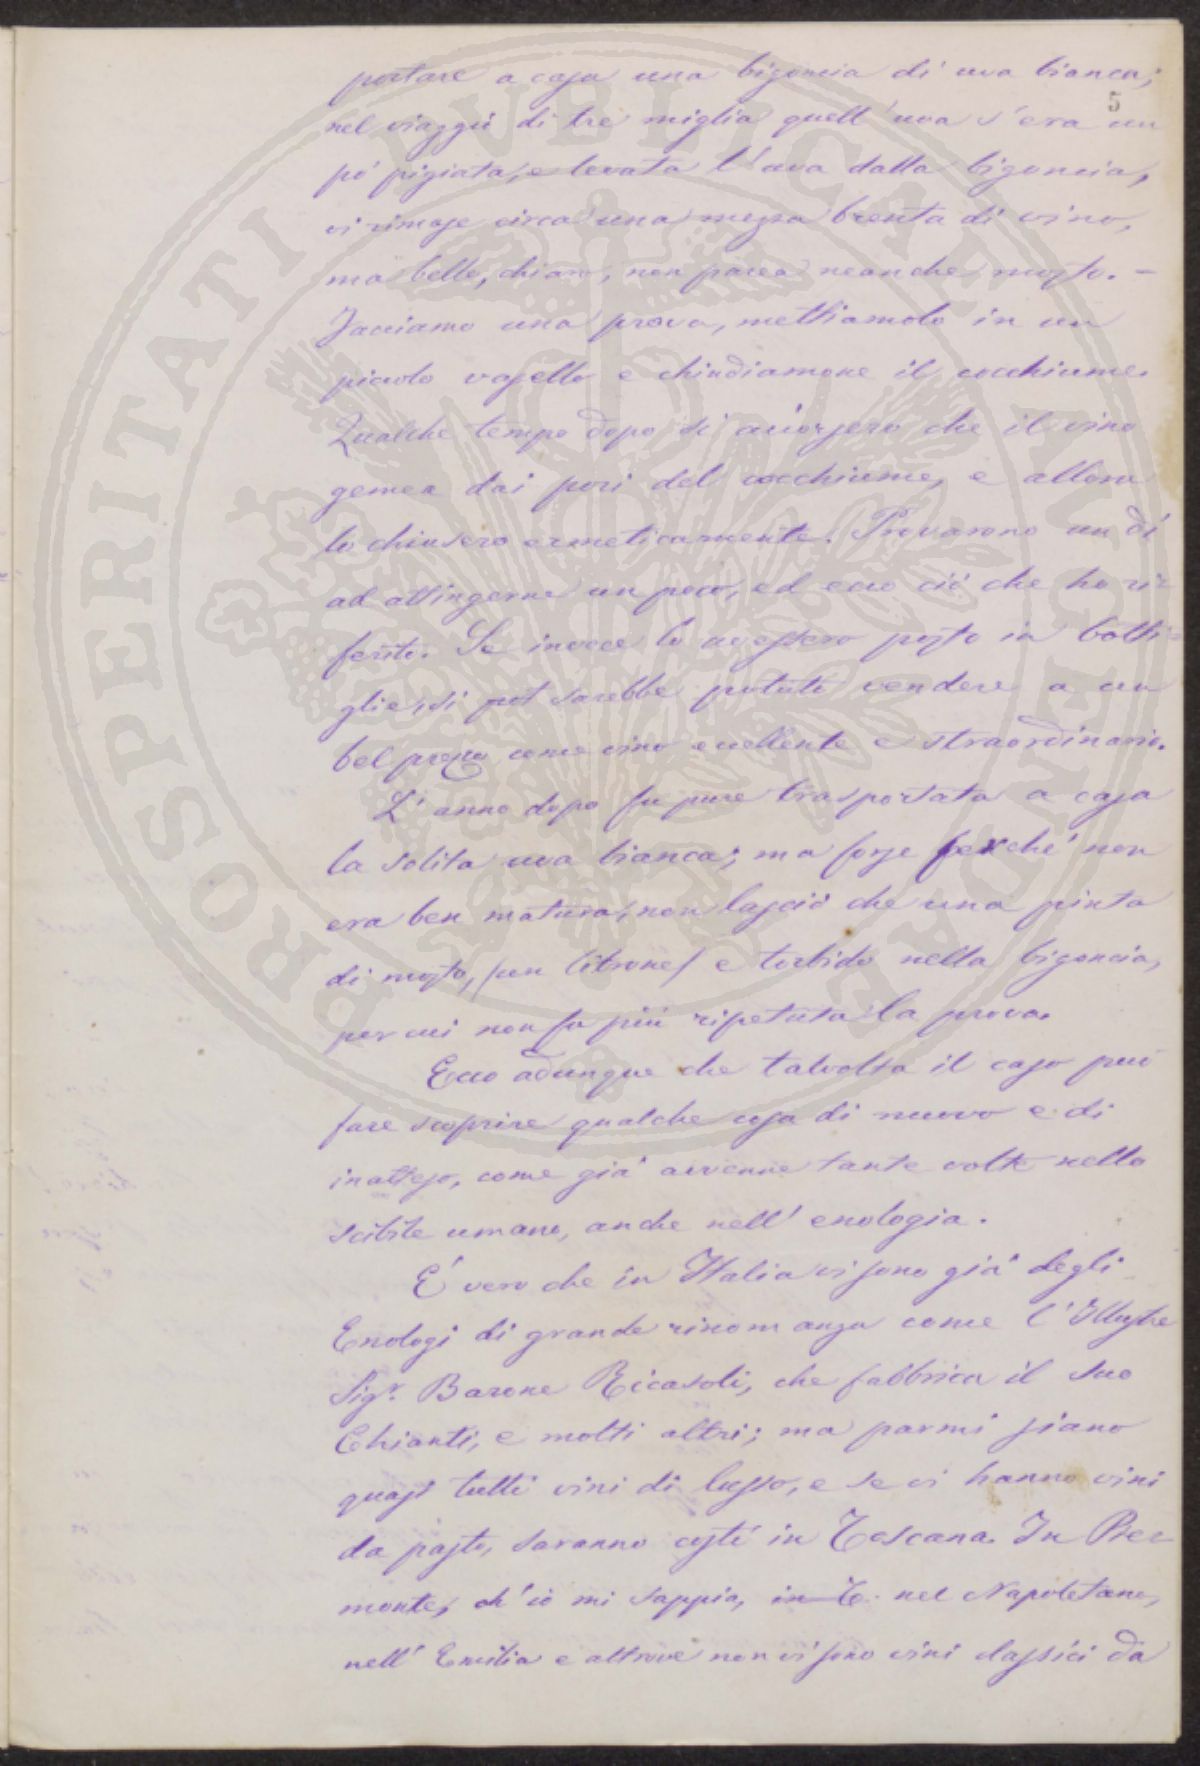 5
portare a casa una bigoncia di uva bianca;
nel viaggio di tre miglia quell'uva s'era un
pò pigiata, e levata l'uva dalla bigoncia,
vi rimase circa una mezza brenta di vino,
ma bello, chiaro, non parea neanche mosto. –
Facciamo una prova, mettiamolo in un
piccolo vasello e chiudiamone il cocchiume.
Qualche tempo dopo si accorsero che il vino
gemea dai pori del cocchiume, e allora
lo chiusero ermeticamente. Provarono un dì
ad attingerne un poco, ed ecco ciò che ho ri=
ferito. Se invece lo avessero posto in botti=
glie, si pot sarebbe potuto vendere a un
bel prezzo come vino eccellente e straordinario.
L'anno dopo fu pure trasportata a casa
la solita uva bianca; ma forse perché non
era ben matura, non lasciò che una pinta
di mosto, (un litrone) e torbido nella bigoncia,
per cui non fu più ripetuta la prova.
Ecco adunque che talvolta il caso può
fare scoprire qualche cosa di nuovo e di
inatteso, come già avvenne tante volte nello
scibile umano, anche nell'enologia.
É vero che in Italia vi sono già degli
Enologi di grande rinomanza come l'Illustre
Sigr. Barone Ricasoli, che fabbrica il suo
Chianti, e molti altri; ma parmi siano
quasi tutti vini di lusso, e se vi hanno vini
da pasto, saranno costì in Toscana. In Pie=
monte, ch'io mi sappia, in T. nel Napoletano,
nell'Emilia e altrove non vi sono vini classici da
PROSPERITATI PVBLICAE AVGENDAE